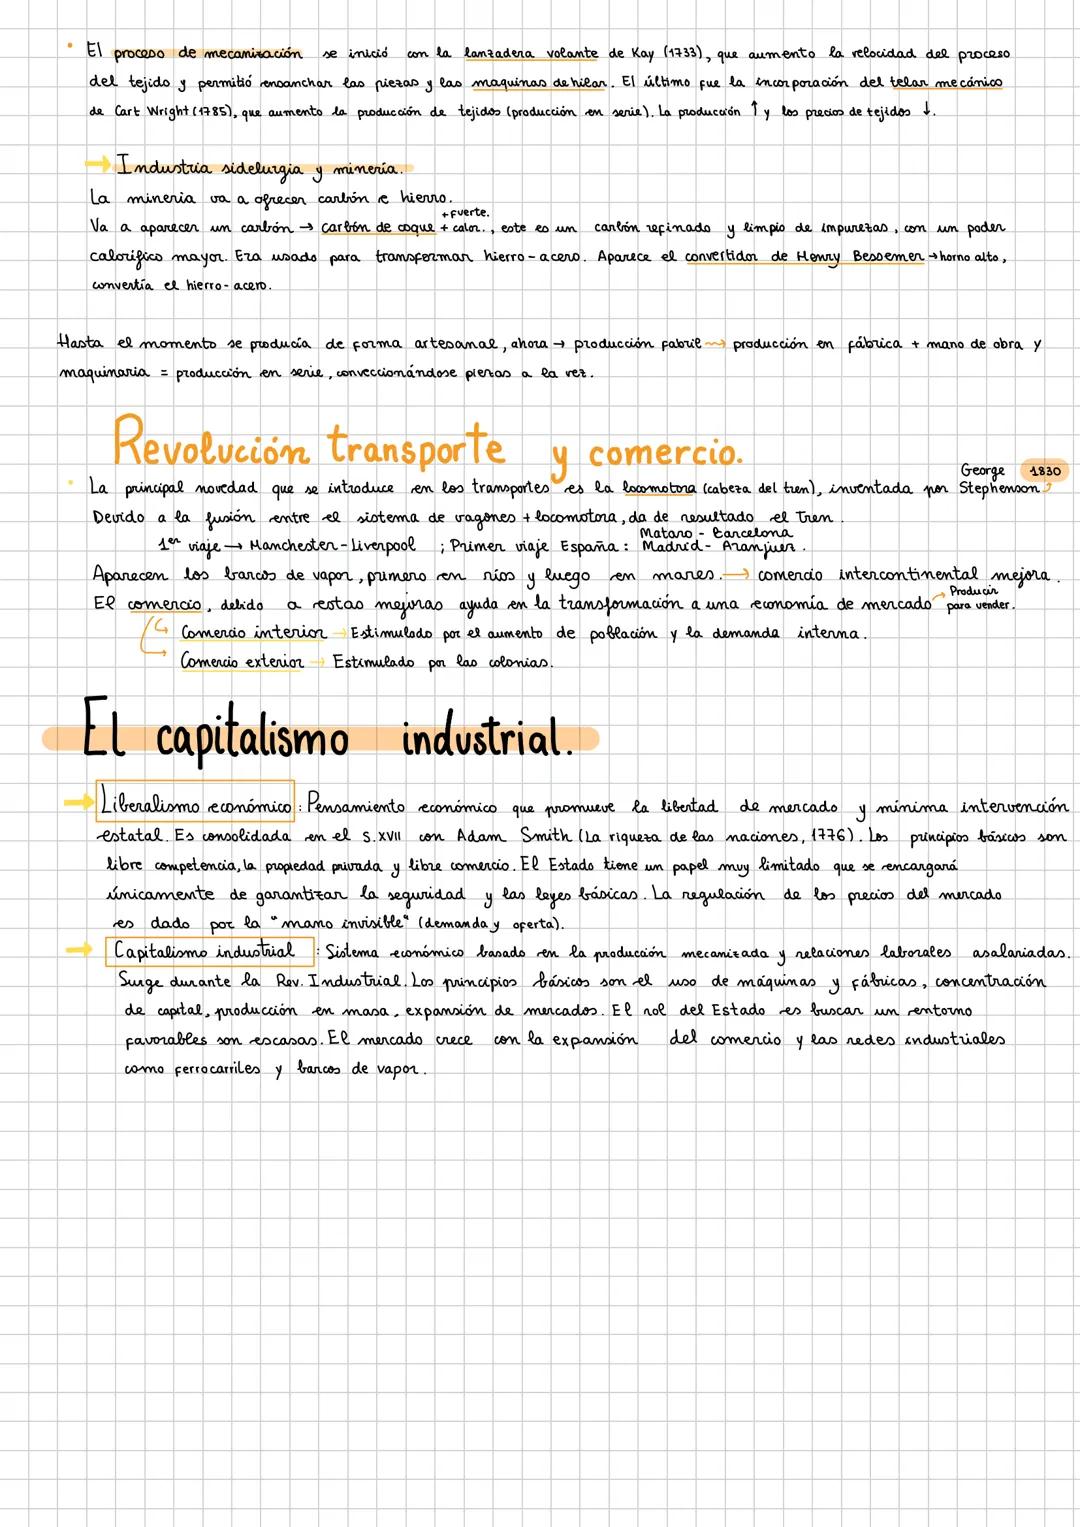 • El proceso de mecanización se inició con la lanzadera volante de Kay (1733), que aumento la velocidad del proceso
del tejido y permitió ensanchar las piezas y las maquinas de hilar. El último fue la incorporación del telar mecánico
de Cart Wright (1785), que aumento la producción de tejidos (producción en serie). La producción ↑ y los precios de tejidos ↓.
→ Industria sidelurgia y minería.
La mineria va a ofrecer carbón e hierro.
+ fuerte.
Va a aparecer un carbón → carbón de coque + calor., este es un carbón refinado y limpio de impurezas, con un poder
calorífico mayor. Era usado para transformar hierro - acero. Aparece el convertidor de Henry Bessemer → horno alto,
convertía el hierro - acero.
Hasta el momento se producía de forma artesanal, ahora → producción fabril → producción en fábrica + mano de obra y
maquinaria = producción en serie, conveccionándose piezas a la vez.
Revolución transporte y comercio.
George 1830
• La principal novedad que se introduce en los transportes es la locomotora (cabeza del tren), inventada por Stephenson
Devido a la fusión entre el sistema de vagones + locomotora, da de resultado el Tren.
Mataro - Barcelona
1er viaje → Manchester - Liverpool ; Primer viaje España: Madrid - Aranjuez.
Aparecen los barcos de vapor, primero en ríos y luego en mares. → comercio intercontinental mejora.
Producir
El comercio, debido a estas mejoras ayuda en la transformación a una economía de mercado → para vender.
Comercio interior → Estimulado por el aumento de población y la demanda interna.
Comercio exterior → Estimulado por las colonias.
El capitalismo industrial.
→ Liberalismo económico: Pensamiento económico que promueve la libertad de mercado y mínima intervención
estatal. Es consolidada en el s.XVII con Adam Smith (La riqueza de las naciones, 1776). Los principios básicos son
libre competencia, la propiedad privada y libre comercio. El Estado tiene un papel muy limitado que se encargará
únicamente de garantizar la seguridad y las leyes básicas. La regulación de los precios del mercado
es dado por la "mano invisible" (demanda y oferta).
→ Capitalismo industrial: Sistema económico basado en la producción mecanizada y relaciones laborales asalariadas.
Surge durante la Rev. Industrial. Los principios básicos son el uso de máquinas y fábricas, concentración
de capital, producción en masa, expansión de mercados. El rol del Estado es buscar un entorno
favorables son escasas. El mercado crece con la expansión del comercio y las redes industriales
como ferrocarriles y barcos de vapor.